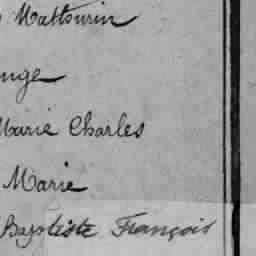 Mathurin
Marie Charles
Marie
Baptiste François